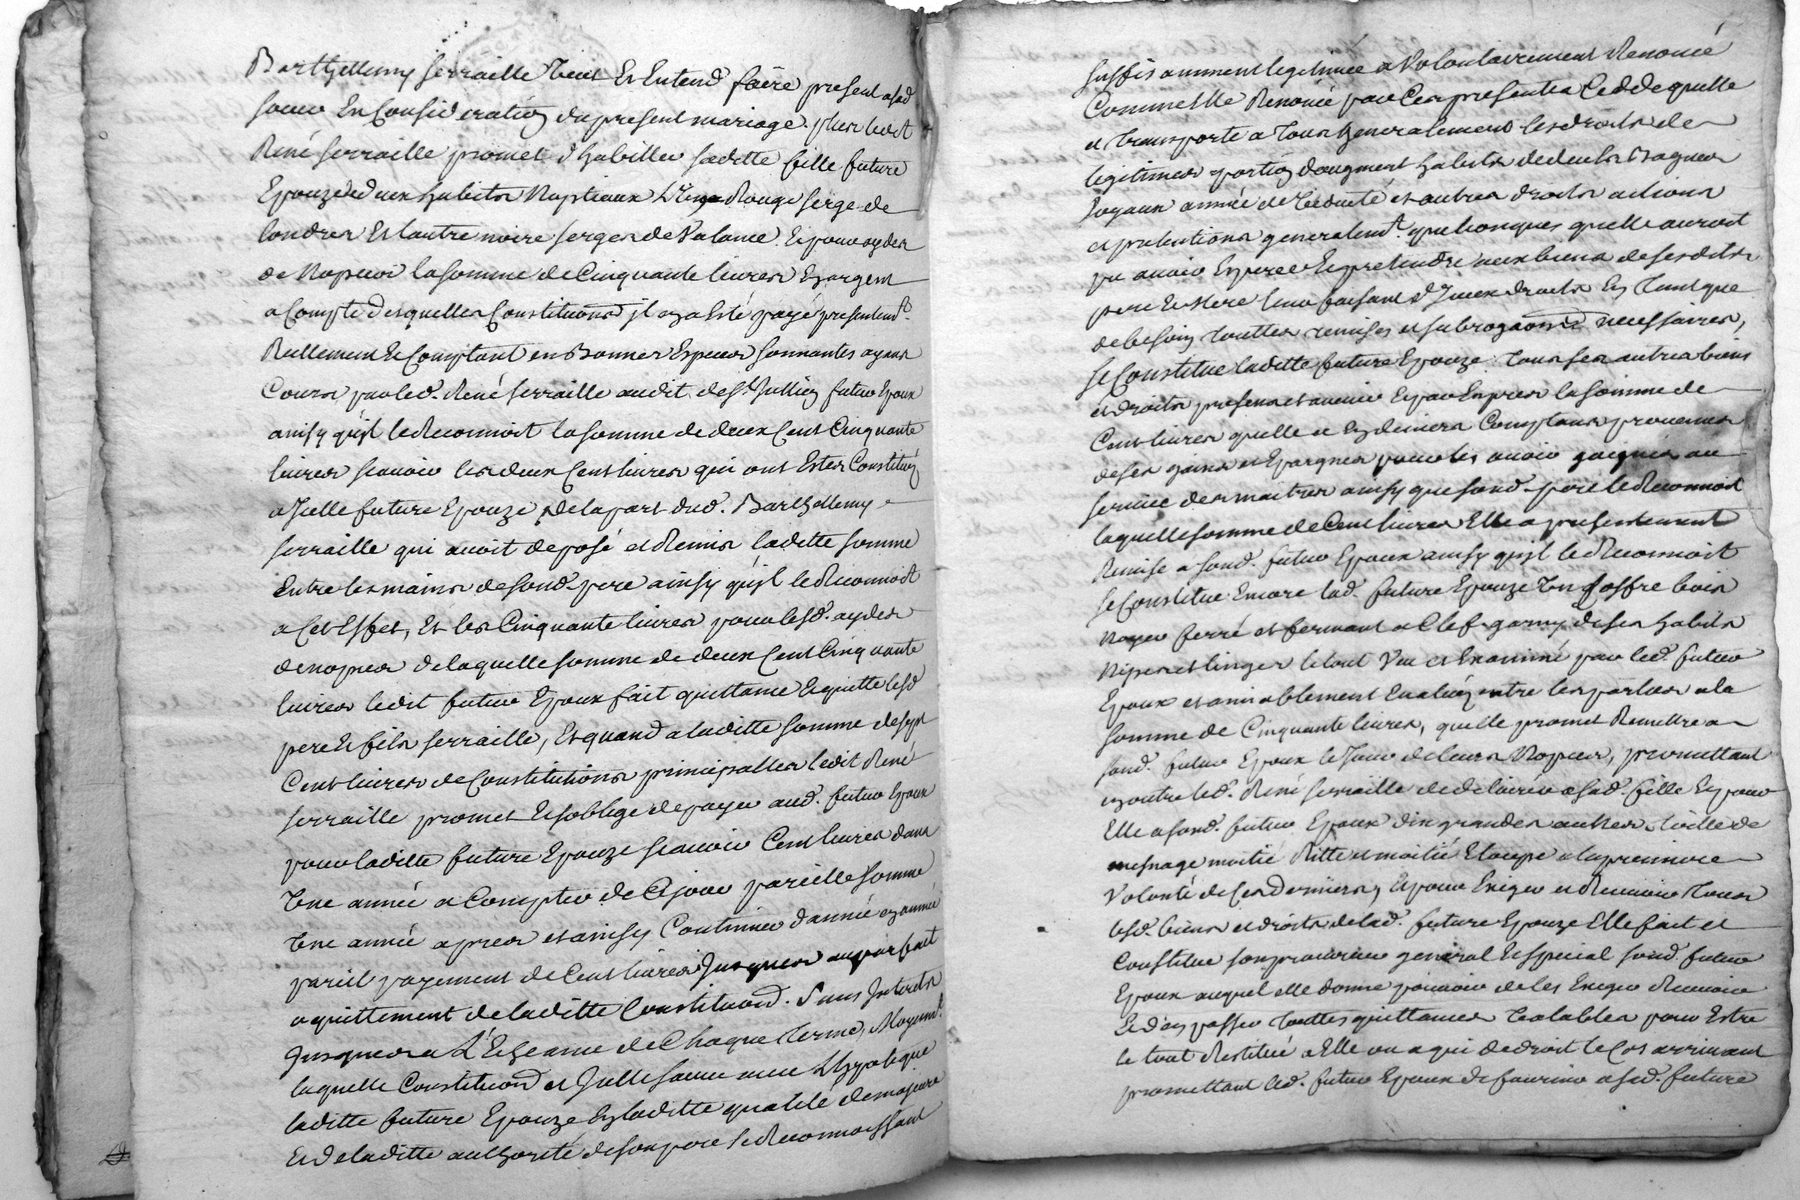 Barthellemy Serraille veut Et Entend faire present a sad
soeur En Consideration du present mariage. plus ledit
René Serraille promet d'habiller saditte fille future
Epouze de deux habits Nuptiaux L'un Rouge serge de
londres Et lautre noire serges de Valance. Et pour aydes
de Nopces la somme de Cinquante livres En argent
a Compte desquelles Constitutions il en a Esté payé presentemt.
Reellement Et Comptant en Bonnes Especes sonnantes ayant
Cours par led. René Serraille audit. de St. Jullien futur Epoux
ainsy quil le Reconnoit la somme de deux Cent Cinquante
livres scavoir les deux Cent livres qui ont Estes Constitués
a Icelle future Epouze de la part dud. Barthellemy
Serraille qui avoit deposé et Remis laditte somme
Entre les mains de sond. pere ainsy quil le Reconnoit
a Cet Effet, Et les Cinquante livres pour lesd. aydes
de nopces de laquelle somme de deux Cent Cinquante
livres ledit futur Epoux fait quittance Et quitte lesd
pere Et fils Serraille, Et quand a laditte somme de sept
Cent livres de Constitutions principalles ledit René
Serraille promet Et soblige de payer aud. futur Epoux
pour laditte future Epouze scavoir Cent livres dans
Une année a Compter de Ce jour pareille somme
Une année apres et ainsy Continuer d'année en année
pareil payement de Cent livres Jusques au parfait
aquittement de laditte Constitution. Sans Interets
Jusques a L'Echeance de Chaque terme, Moyent.
laquelle Constitution et Icelle sauve avec L'hypoteque
laditte future Epouze En laditte qualité de majeure
Et de laditte authorité de son pere se Reconnoissant
suffisamment legitimée a Volontairement Renoncé
Comme Elle Renonce par Ces presentes Cedde quitte
et transporte a Tous Generalement les droits de
legitimes portion d'augment habits de deuils Bagues
Joyaux année de Viduité et autres droits actions
et pretentions generalemt. quelconques quelle auroit
pu avoir Esperer Et pretendre aux biens de sesdits
pere Et Mere leur faisant d'Iceux droits En Tant que
de besoin touttes remises et subrogaons. necessaires,
Se Constitue laditte future Epouze. Tous ses autres biens
et droits presens et avenir Et par Expres la somme de
Cent livres quelle a En deniers Comptans provenus
de ses gains et Epargnes pour les avoir gaignés au
service des maitres ainsy que sond. pere le Reconnoit
laquelle somme de Cent livres Elle a presentement
Remise a sond. futur Epoux ainsy quil le Reconnoit
Se Constitue Encore lad. future Epouze Un Coffre bois
Noyer ferré et fermant a Clef garny de ses habits
Nipes et linges le tout Vu et Examiné par led. futur
Epoux et amiablement Evalué entre les parties a la
somme de Cinquante livres, quelle promet Remettre a
sond. futur Epoux le Jour de leurs Nopces, promettant
en outre led. René Serraille de delivrer a sad. fille Et pour
Elle a sond. futur Epoux dix grandes aulnes toille de
mesnage moitié Ritte et moitié Etoupe a la premiere
Volonté de Ces Derniers, Et pour Exiger et Recevoir Tous
lesd. biens et droits de lad. future Epouze Elle fait et
Constitue son procureur general Et special sond. futur
Epoux auquel elle donne pouvoir de les Exiger Recevoir
Et d'en passer touttes quittances Valables pour Estre
le tout Restitué a Elle ou a qui de droit le Cas arrivant
promettant led. futur Epoux de fournir a sad. future